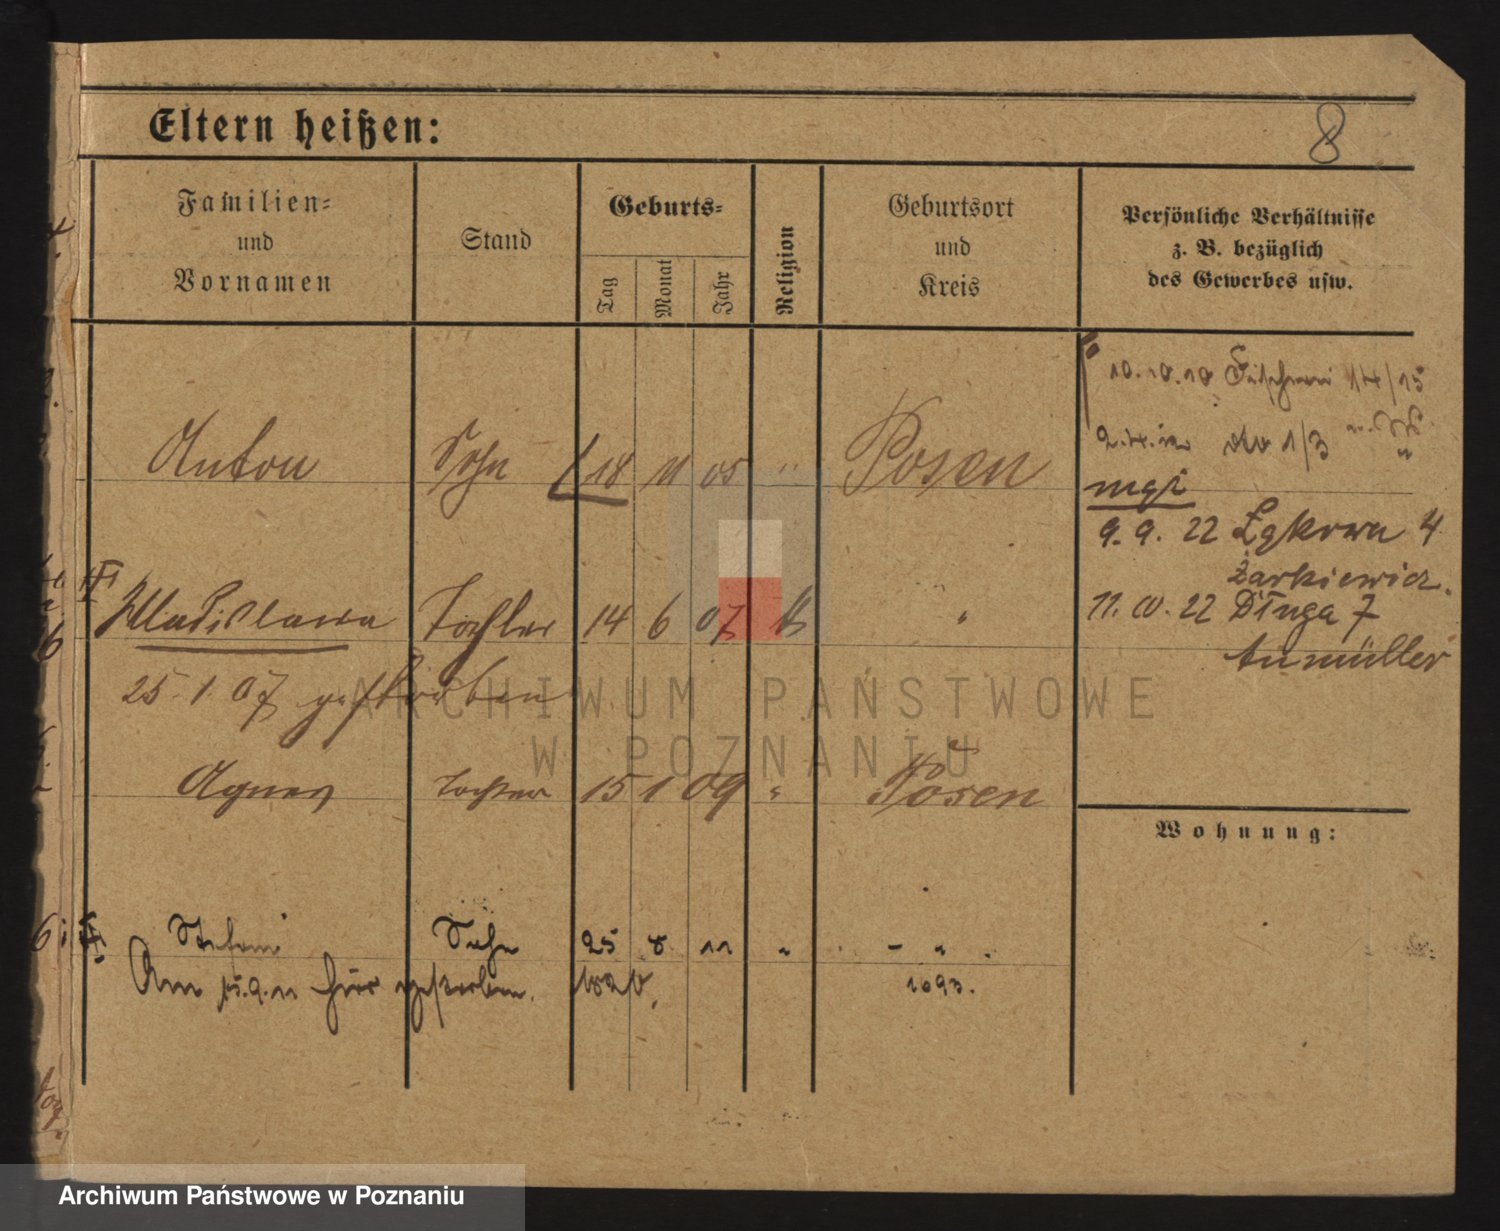 Eltern heißen:
8
Familien-
und
Vornamen
Stand
Geburts-
Tag
Monat
Jahr
Religion
Geburtsort
und
Kreis
Persönliche Verhältnisse
z. B. bezüglich
des Gewerbes usw.
10.10.10 14/15
Anton Sohn 18 11 05 " Posen
1/3
9. 9. 22 Łąkowa 4
Żarkiewicz.
Wladislawa Tochter 14 6 07 k "
11. 10. 22 Długa 7
Aumüller
25. 1. 07 gestorben
Agnes Tochter 15 1 09 " Posen
Wohnung:
Stefan Sohn 25 8 11 " - "
Am 15.9.11 hier gestorben.
1693.
ARCHIWUM PAŃSTWOWE
W POZNANIU
Archiwum Państwowe w Poznaniu